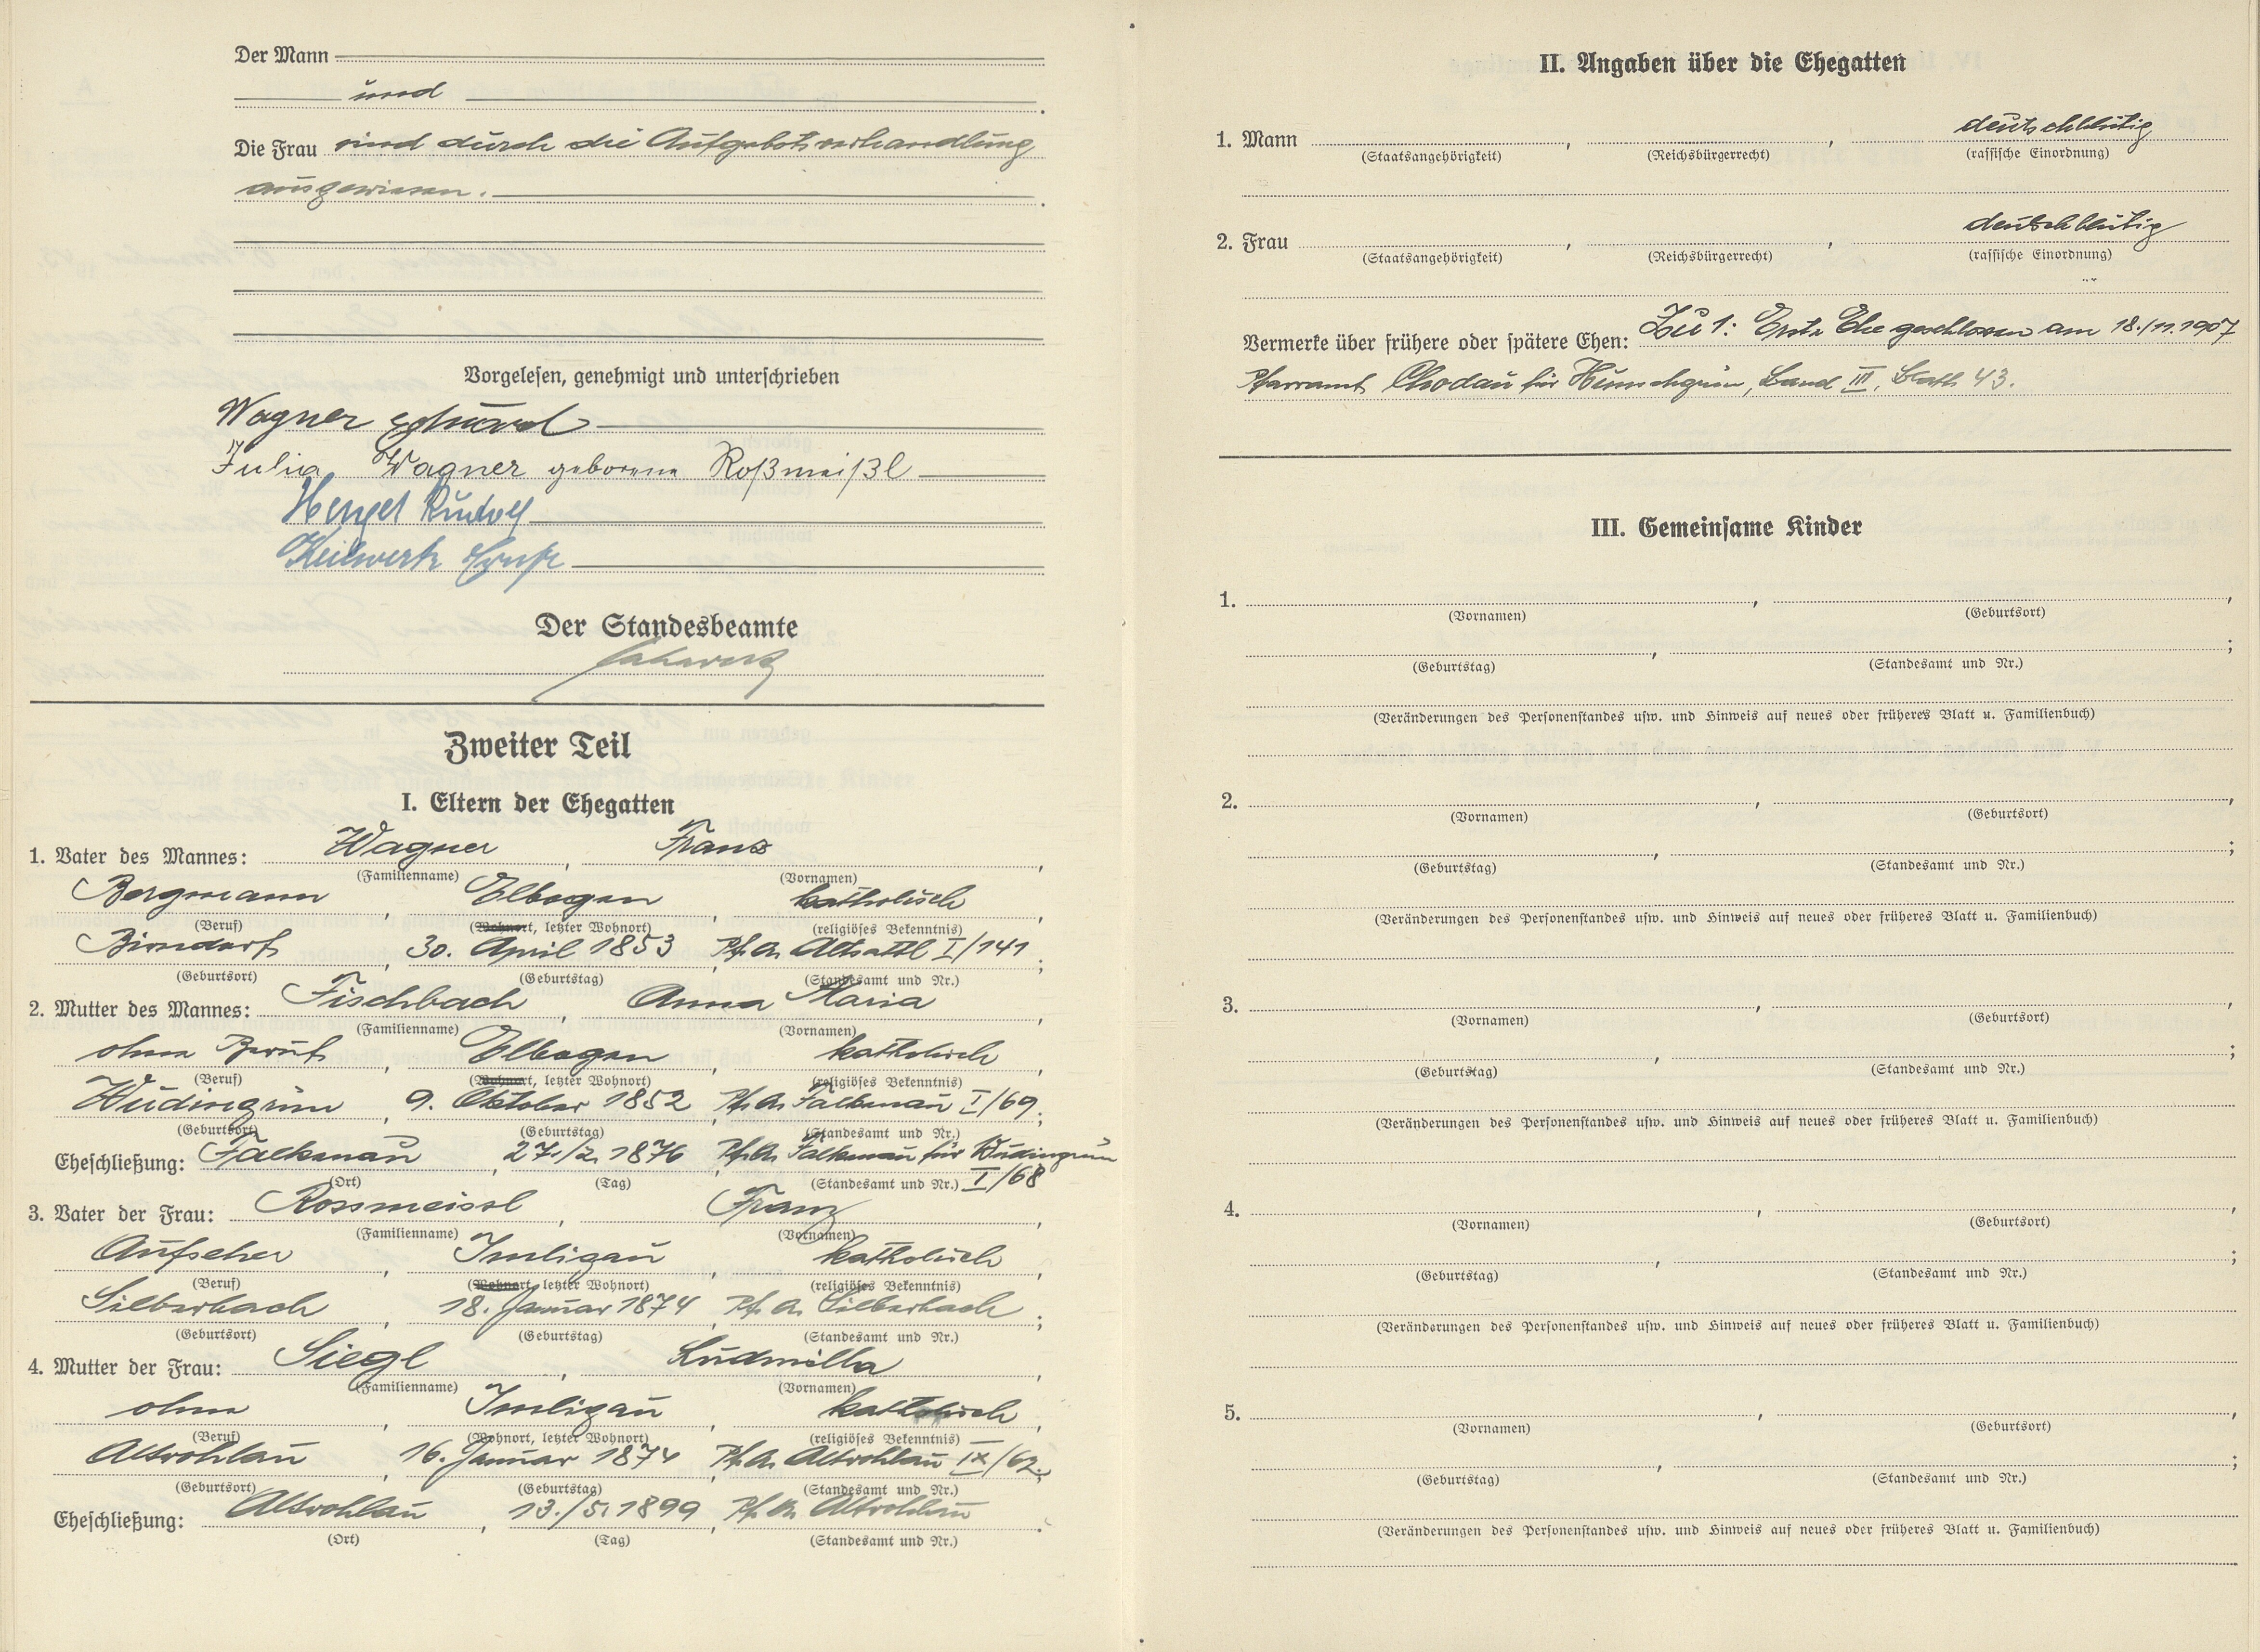 Der Mann
und
Die Frau sind durch die Aufgebotsverhandlung
ausgewiesen.
Vorgelesen, genehmigt und unterschrieben
Wagner Eduard
Julia Wagner geborene Roßmeißl
Hengel Rudolf
Keilwerth
Der Standesbeamte
Zweiter Teil
I. Eltern der Ehegatten
1. Vater des Mannes: Wagner, Franz,
(Familienname) (Vornamen)
Bergmann, Elbogen, katholisch,
(Beruf) (Wohnort, letzter Wohnort) (religiöses Bekenntnis)
Birndorf, 30. April 1853, Pf. A. Altsattl I/141;
(Geburtsort) (Geburtstag) (Standesamt und Nr.)
2. Mutter des Mannes: Fischbach, Anna Maria,
(Familienname) (Vornamen)
ohne Beruf, Elbogen, katholisch,
(Beruf) (Wohnort, letzter Wohnort) (religiöses Bekenntnis)
Wudingrün, 9. Oktober 1852, Pf. A. Falkenau I/69;
(Geburtsort) (Geburtstag) (Standesamt und Nr.)
Eheschließung: Falkenau, 27./2. 1876, Pf. A. Falkenau für Wudingrün
(Ort) (Tag) (Standesamt und Nr.) I/68
3. Vater der Frau: Rossmeissl, Franz,
(Familienname) (Vornamen)
Aufseher, Imligau, katholisch,
(Beruf) (Wohnort, letzter Wohnort) (religiöses Bekenntnis)
Silberbach, 18. Januar 1874, Pf. A. Silberbach;
(Geburtsort) (Geburtstag) (Standesamt und Nr.)
4. Mutter der Frau: Siegl, Ludmilla,
(Familienname) (Vornamen)
ohne, Imligau, katholisch,
(Beruf) (Wohnort, letzter Wohnort) (religiöses Bekenntnis)
Altrohlau, 16. Januar 1874, Pf. A. Altrohlau IX/62;
(Geburtsort) (Geburtstag) (Standesamt und Nr.)
Eheschließung: Altrohlau, 13./5. 1899, Pf. A. Altrohlau.
(Ort) (Tag) (Standesamt und Nr.)
II. Angaben über die Ehegatten
1. Mann , , deutschblütig
(Staatsangehörigkeit) (Reichsbürgerrecht) (rassische Einordnung)
2. Frau , , deutschblütig
(Staatsangehörigkeit) (Reichsbürgerrecht) (rassische Einordnung)
Vermerke über frühere oder spätere Ehen: Zu 1: Erste Ehe geschlossen am 18./11. 1907
Pfarramt Chodau für Hunschgrün, Band III, Blatt 43.
III. Gemeinsame Kinder
1. , ,
(Vornamen) (Geburtsort)
, ;
(Geburtstag) (Standesamt und Nr.)
(Veränderungen des Personenstandes usw. und Hinweis auf neues oder früheres Blatt u. Familienbuch)
2. , ,
(Vornamen) (Geburtsort)
, ;
(Geburtstag) (Standesamt und Nr.)
(Veränderungen des Personenstandes usw. und Hinweis auf neues oder früheres Blatt u. Familienbuch)
3. , ,
(Vornamen) (Geburtsort)
, ;
(Geburtstag) (Standesamt und Nr.)
(Veränderungen des Personenstandes usw. und Hinweis auf neues oder früheres Blatt u. Familienbuch)
4. , ,
(Vornamen) (Geburtsort)
, ;
(Geburtstag) (Standesamt und Nr.)
(Veränderungen des Personenstandes usw. und Hinweis auf neues oder früheres Blatt u. Familienbuch)
5. , ,
(Vornamen) (Geburtsort)
, ;
(Geburtstag) (Standesamt und Nr.)
(Veränderungen des Personenstandes usw. und Hinweis auf neues oder früheres Blatt u. Familienbuch)